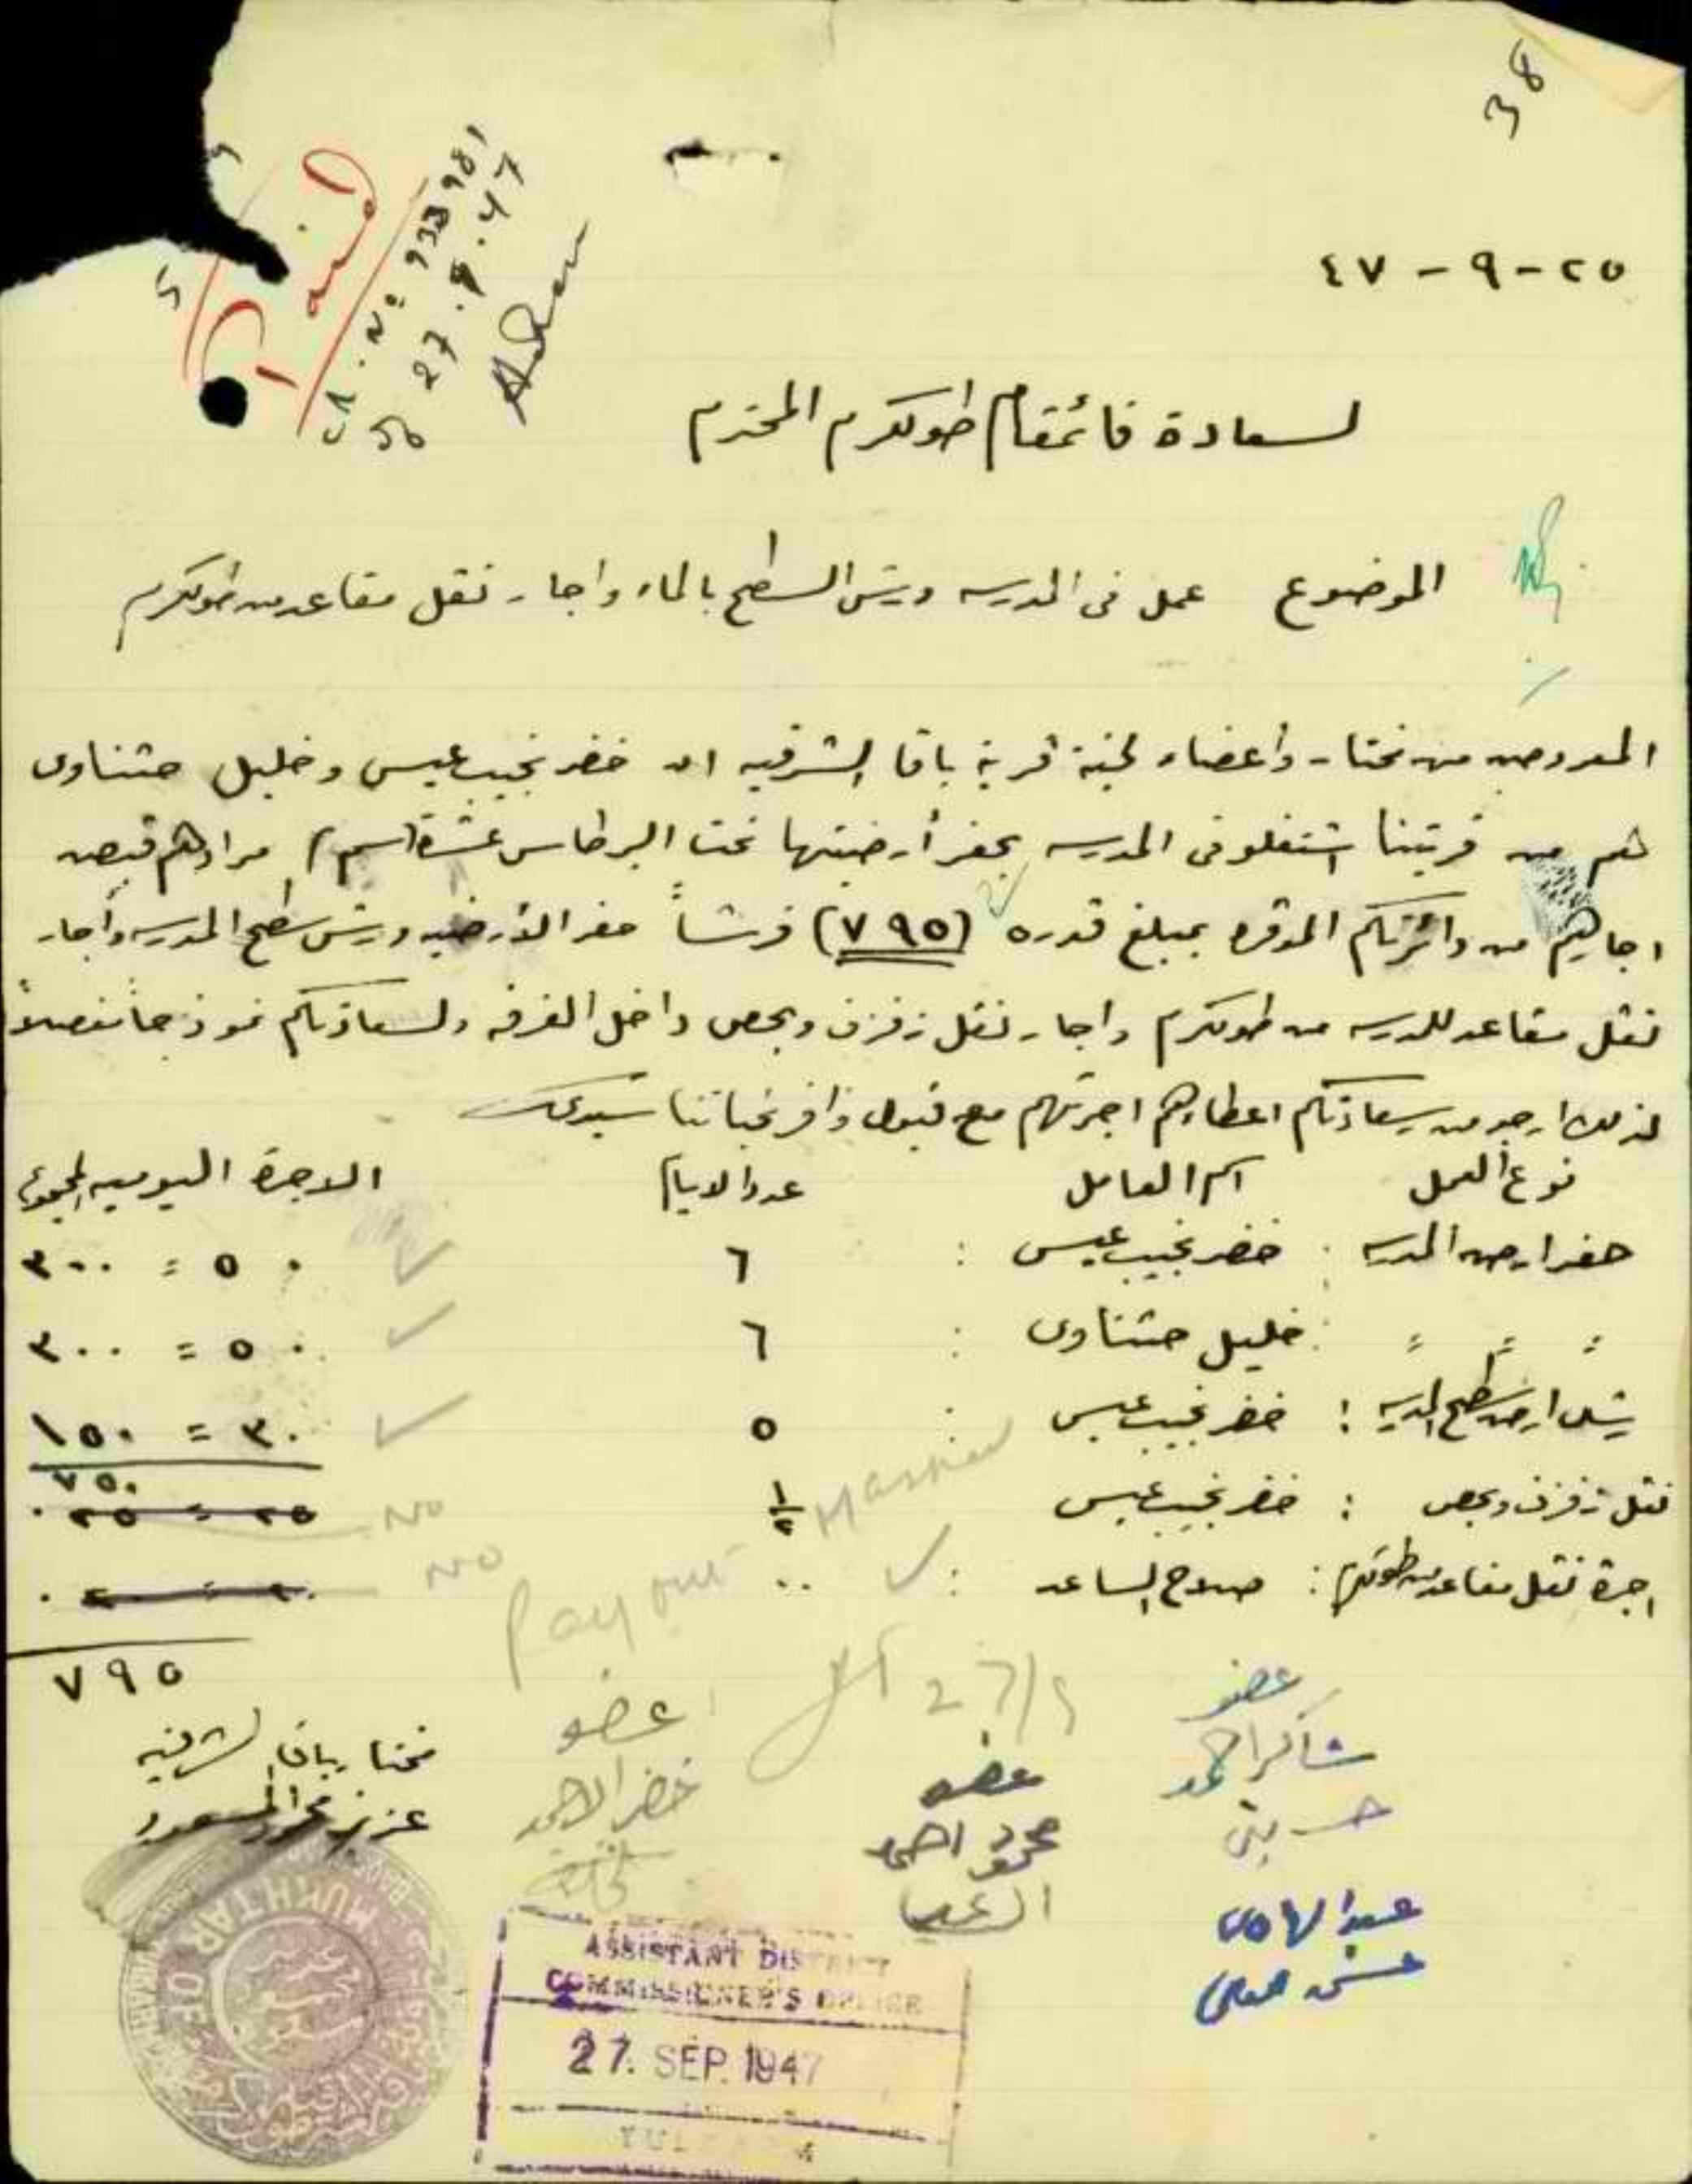 38
Paid
No 933981
27.9.47
٢٥-٩-٤٧
لسعادة قائمقام طولكرم المحترم
الموضوع عمل في المدرسه ورش السطح بالماء واجار نقل مقاعد من طولكرم
المعروض من مختار وأعضاء لجنة قرية باقا الشرقيه ان خضر نجيب عيسى وخليل حتناوى
هم من قريتنا اشتغلو فى المدرسه بحفر أرضيتها تحت البرطاس عشرة (سم) مرادهم قبض
اجارهم من دائرتكم الموقره بمبلغ قدره (٧٩٥) قرشاً حفر الأرضيه ورش سطح المدرسه وأجار
نقل مقاعد للمدرسه من طولكرم واجار نقل زفزف وبحص داخل الغرفه ولسعادتكم نموذجاً مفصلاً
لذلك ارجو من سعادتكم اعطاءهم اجرتهم مع قبول وافر تحياتنا سيدى
نوع العمل اسم العامل عدد الايام الاجرة اليوميه المجموع
حفر ارض المدرسه : خضر نجيب عيسى : ٦ ٥٠ = ٣٠٠
" " " : خليل حتناوى : ٦ ٥٠ = ٣٠٠
رش ارض سطح المدرسه : خضر نجيب عيسى : ٥ ٣٠ = ١٥٠
٧٥٠
نقل زفزف وبحص : خضر نجيب عيسى ١/٢ ٢٥ = ٢٥ No
اجرة نقل مقاعد من طولكرم : صلاح الساعد : ٠٠ No
Pay out
27/9
٧٩٥
مختار باقا الشرقيه
عزيز
عضو
خضر الاحمد
عضو
محمود احمد
عضو
شاكر احمد
عبد الهادى
MUKHTAR OF
ASSISTANT DISTRICT
COMMISSIONER'S OFFICE
27. SEP. 1947